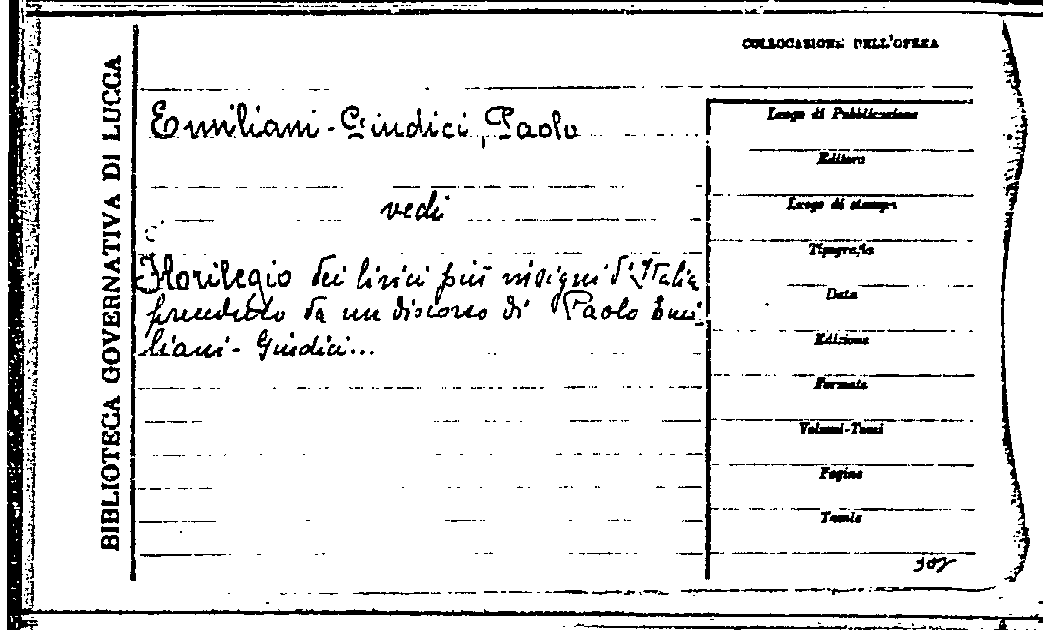 COLLOCAZIONE DELL'OPERA
BIBLIOTECA GOVERNATIVA DI LUCCA
Emiliani-Giudici, Paolo
vedi
Florilegio dei lirici più insigni d'Italia
preceduto da un discorso di Paolo Emi
liani-Giudici...
Luogo di Pubblicazione
Editore
Luogo di stampa
Tipografia
Data
Edizione
Formato
Volumi-Tomi
Pagine
Tavole